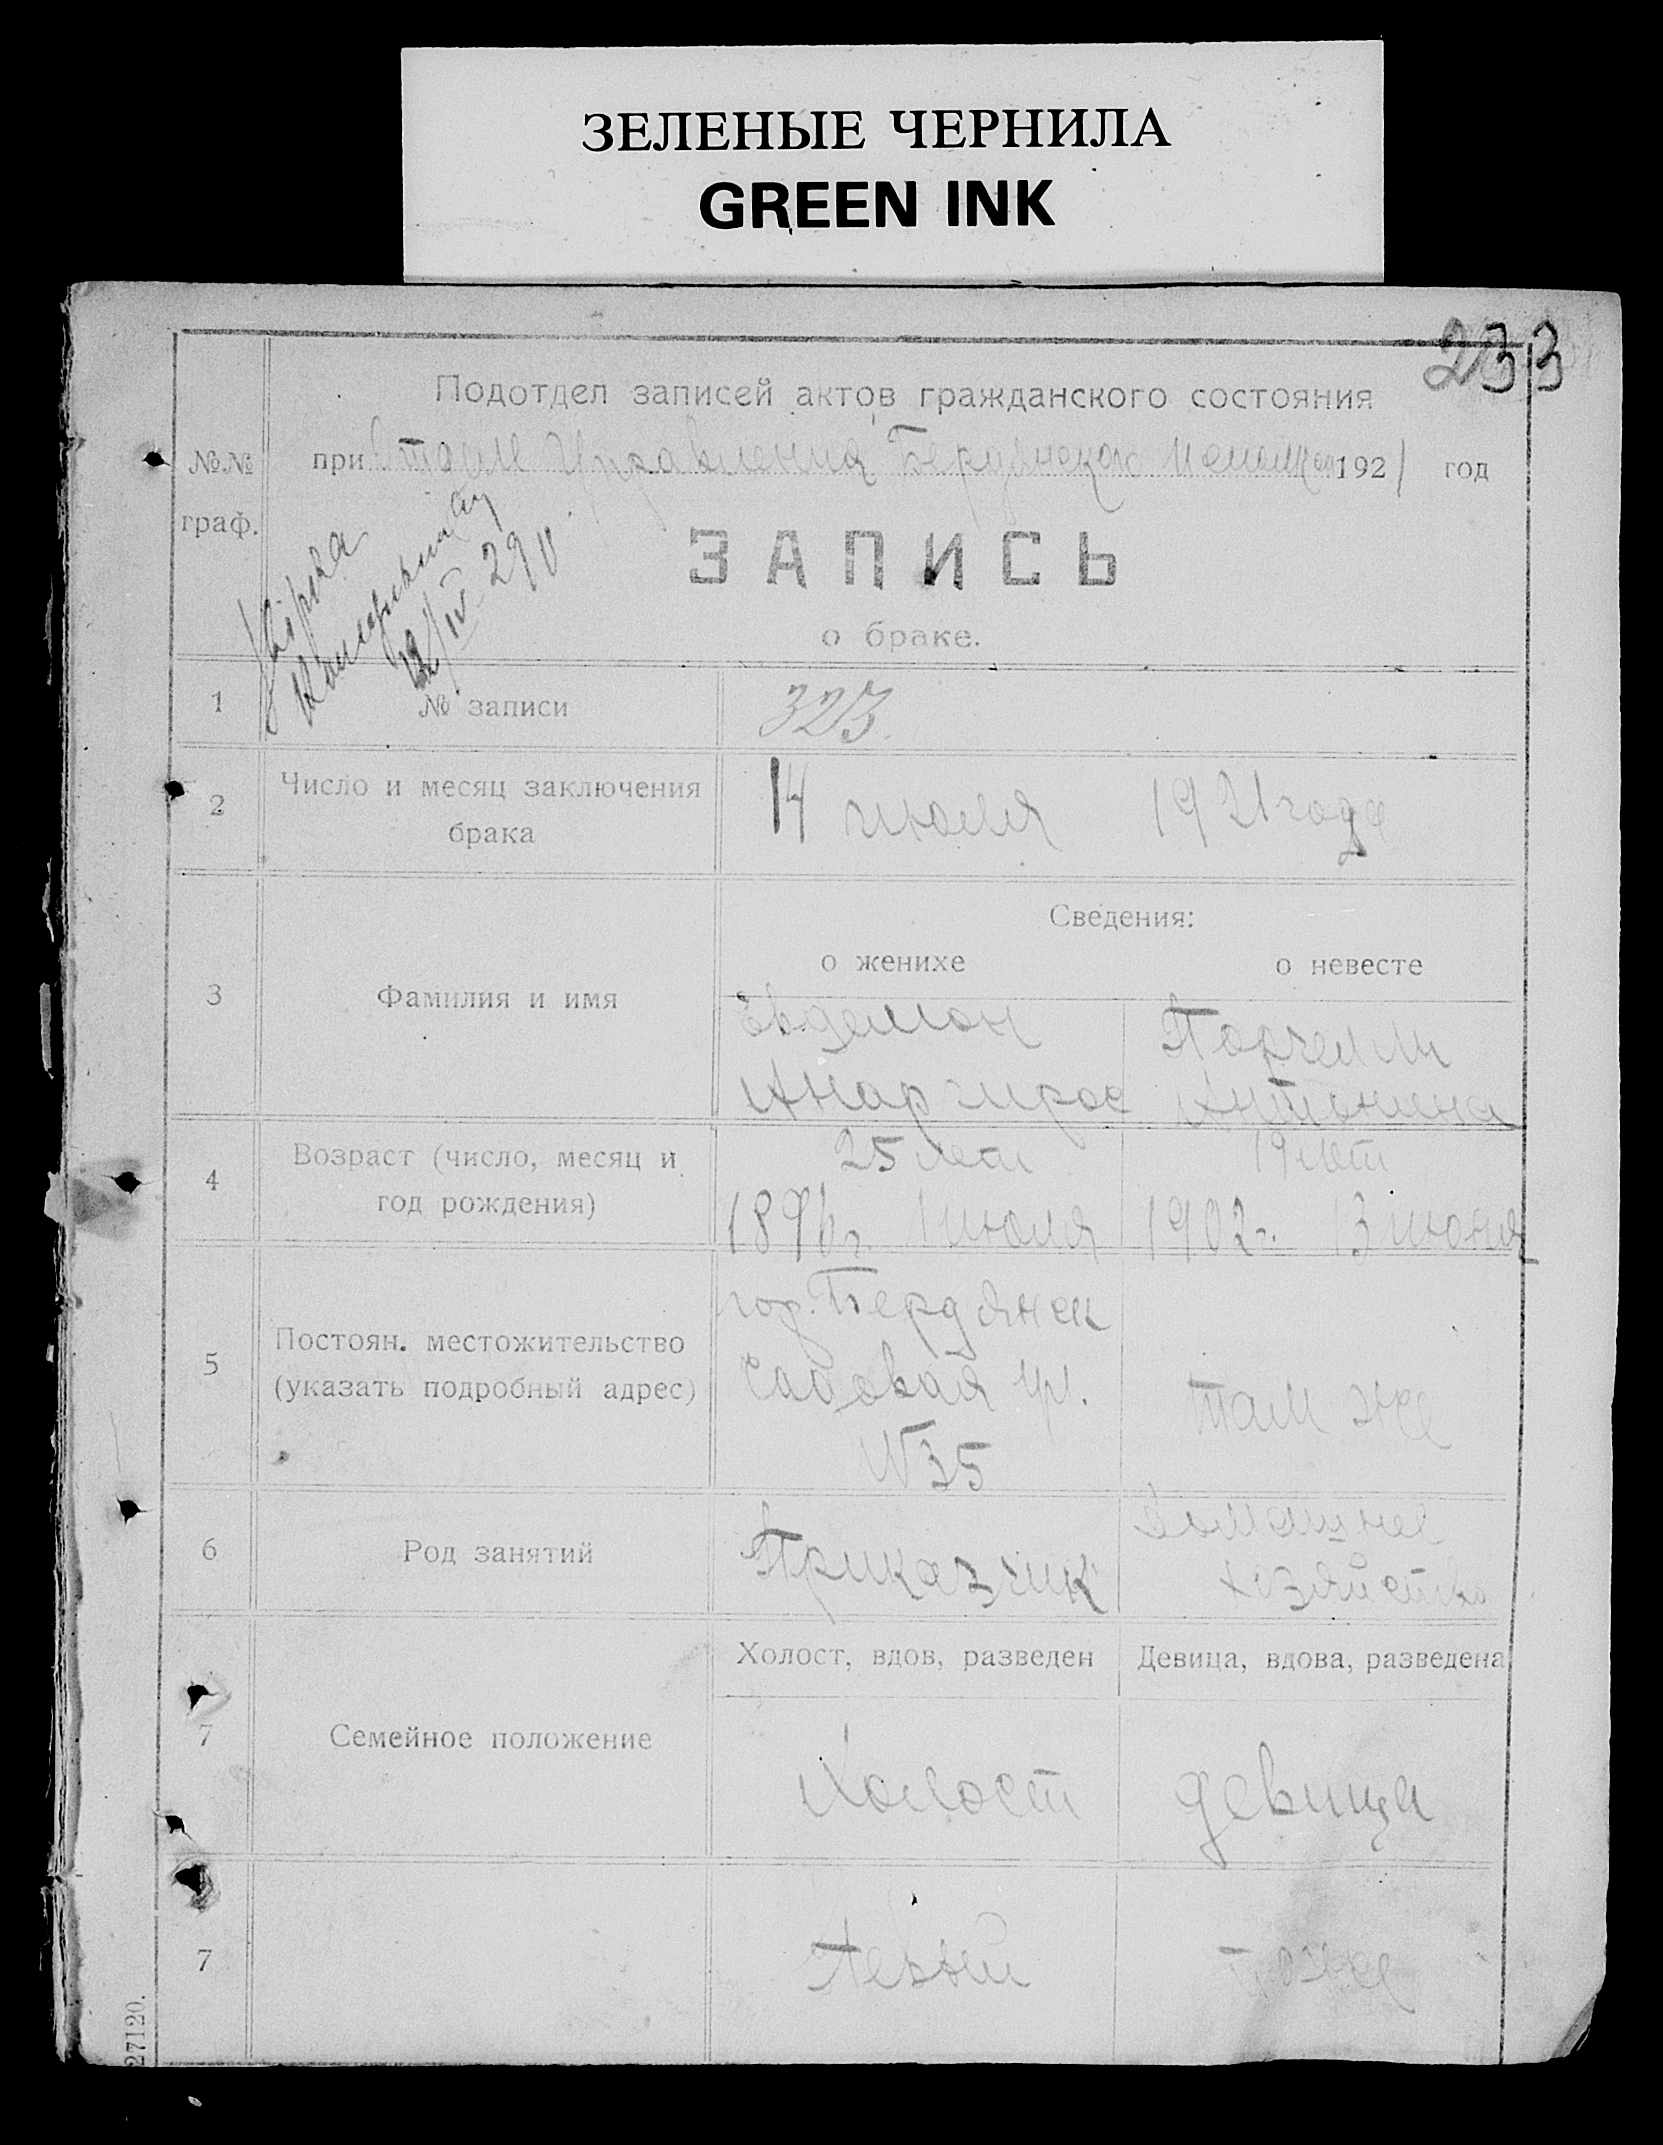 ЗЕЛЕНЫЕ ЧЕРНИЛА
GREEN INK
233
Подотдел записей актов гражданского состояния
№№ при Отделе Управления Бердянском 1921 год
граф.
ЗАПИСЬ
о браке.
1 № записи 323
2 Число и месяц заключения брака 14 июля 1921 года
Сведения:
о женихе о невесте
3 Фамилия и имя
Евдемон Порчелли
Анаргирос Антонина
4 Возраст (число, месяц и год рождения)
25 лет 19 лет
1896 г. 1 июля 1902 г. 13 июня
5 Постоян. местожительство (указать подробный адрес)
гор. Бердянск
Садовая ул. там же
№35
6 Род занятий
Приказчик Домашнее
хозяйство
Холост, вдов, разведен Девица, вдова, разведена
7 Семейное положение
Холост девица
7 Первый тоже
27120.